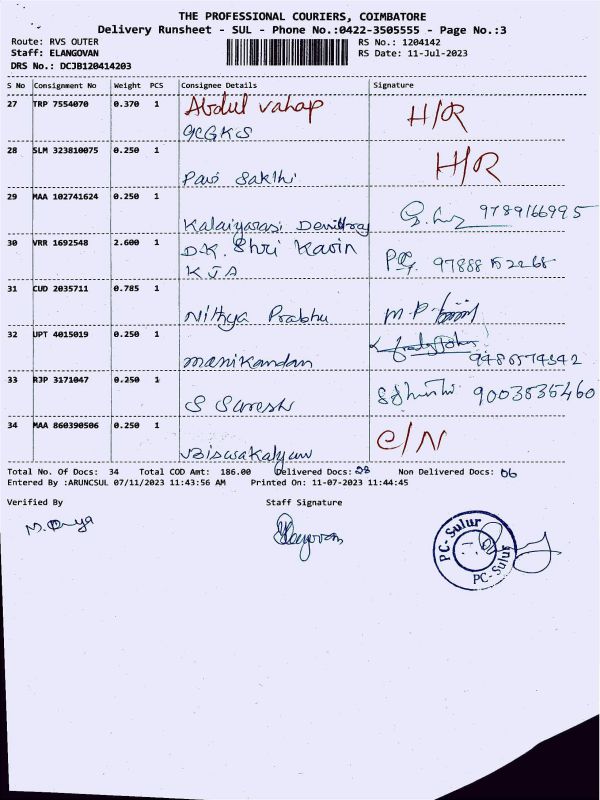 THE PROFESSIONAL COURIERS, COIMBATORE
Delivery Runsheet - SUL - Phone No.:0422-3505555 - Page No.:3
Route: RVS OUTER RS No.: 1204142
Staff: ELANGOVAN RS Date: 11-Jul-2023
DRS No.: DCJB120414203
S No Consignment No Weight PCS Consignee Details Signature
27 TRP 7554070 0.370 1 Abdul vahap H/R
9CGKS
28 SLM 323810075 0.250 1 H/R
Pavi Sakthi
29 MAA 102741624 0.250 1 9789166995
Kalaiyarasi Devitray
30 VRR 1692548 2.600 1 D.K. Shri Kavin
KJA 97888 15 22 68
31 CUD 2035711 0.785 1
Nithya Prabhu M.P.
32 UPT 4015019 0.250 1
manikandan 9486574342
33 RJP 3171047 0.250 1
S Suresh 9003535460
34 MAA 860390506 0.250 1 C/N
Biswakalyan
Total No. Of Docs: 34 Total COD Amt: 186.00 Delivered Docs: 28 Non Delivered Docs: 06
Entered By :ARUNCSUL 07/11/2023 11:43:56 AM Printed On: 11-07-2023 11:44:45
Verified By Staff Signature
PC-Sulur
PC-Sulur